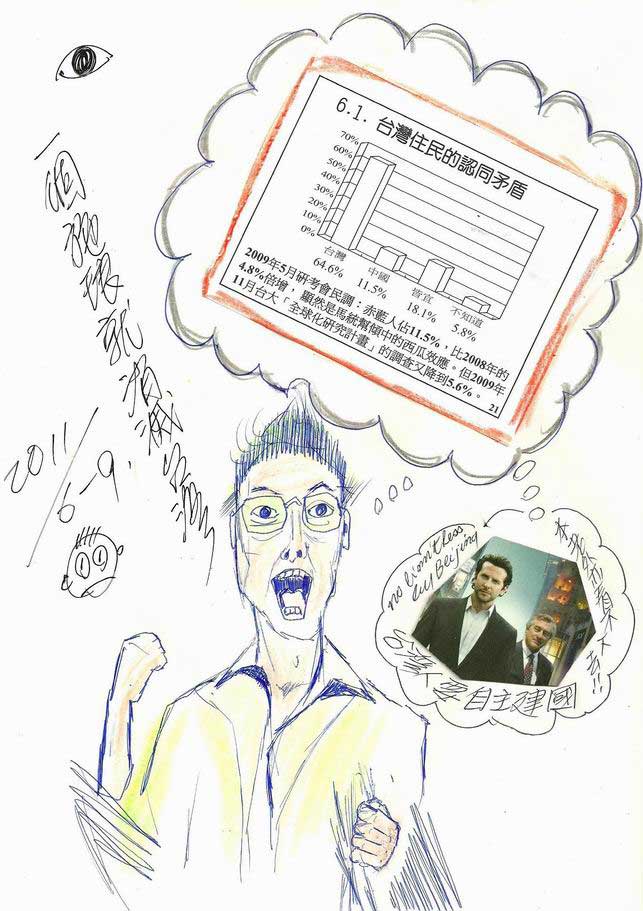 6.1. 台灣住民的認同矛盾
70%
60%
50%
40%
30%
20%
10%
0%
台灣 中國 皆宜 不知道
64.6% 11.5% 18.1% 5.8%
2009年5月研考會民調：赤藍人佔11.5%，比2008年的
4.8%倍增，顯然是馬統幫傾中的西瓜效應。但2009年
11月台大「全球化研究計畫」的調查又降到5.6%。
21
一個
就消滅台灣
2011/6-9.
no
Beijing
自主建國